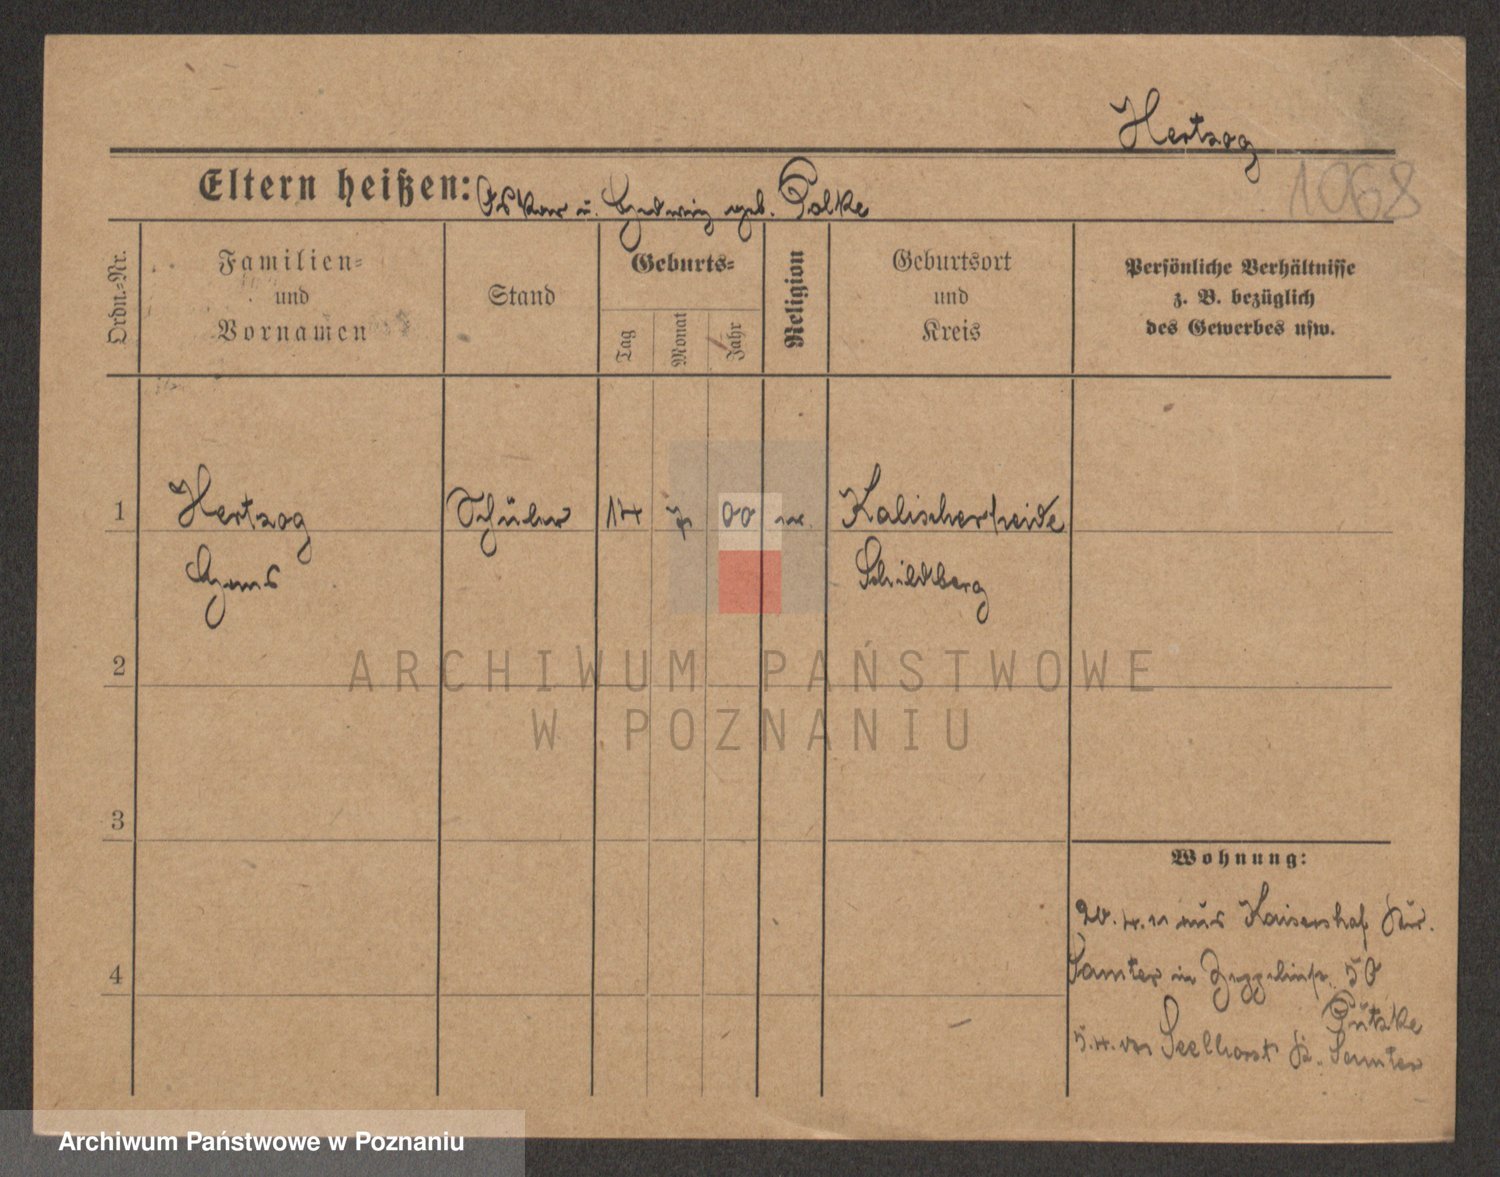 Hertzog
1068
Eltern heißen: Oskar u. Hedwig geb. Polke
Ordn.-Nr.
Familien-
und
Vornamen
Stand
Geburts-
Tag
Monat
Jahr
Religion
Geburtsort
und
Kreis
Persönliche Verhältnisse
z. B. bezüglich
des Gewerbes usw.
1
Hertzog
Hans
Schüler
14
7
00
Kalischerheide
Schildberg
2
3
4
Wohnung:
20. 4. 11 aus Kaisershof
Samter in Zeppelinstr. 50
5. 4. Seelhorst Samter
ARCHIWUM PAŃSTWOWE
W POZNANIU
Archiwum Państwowe w Poznaniu